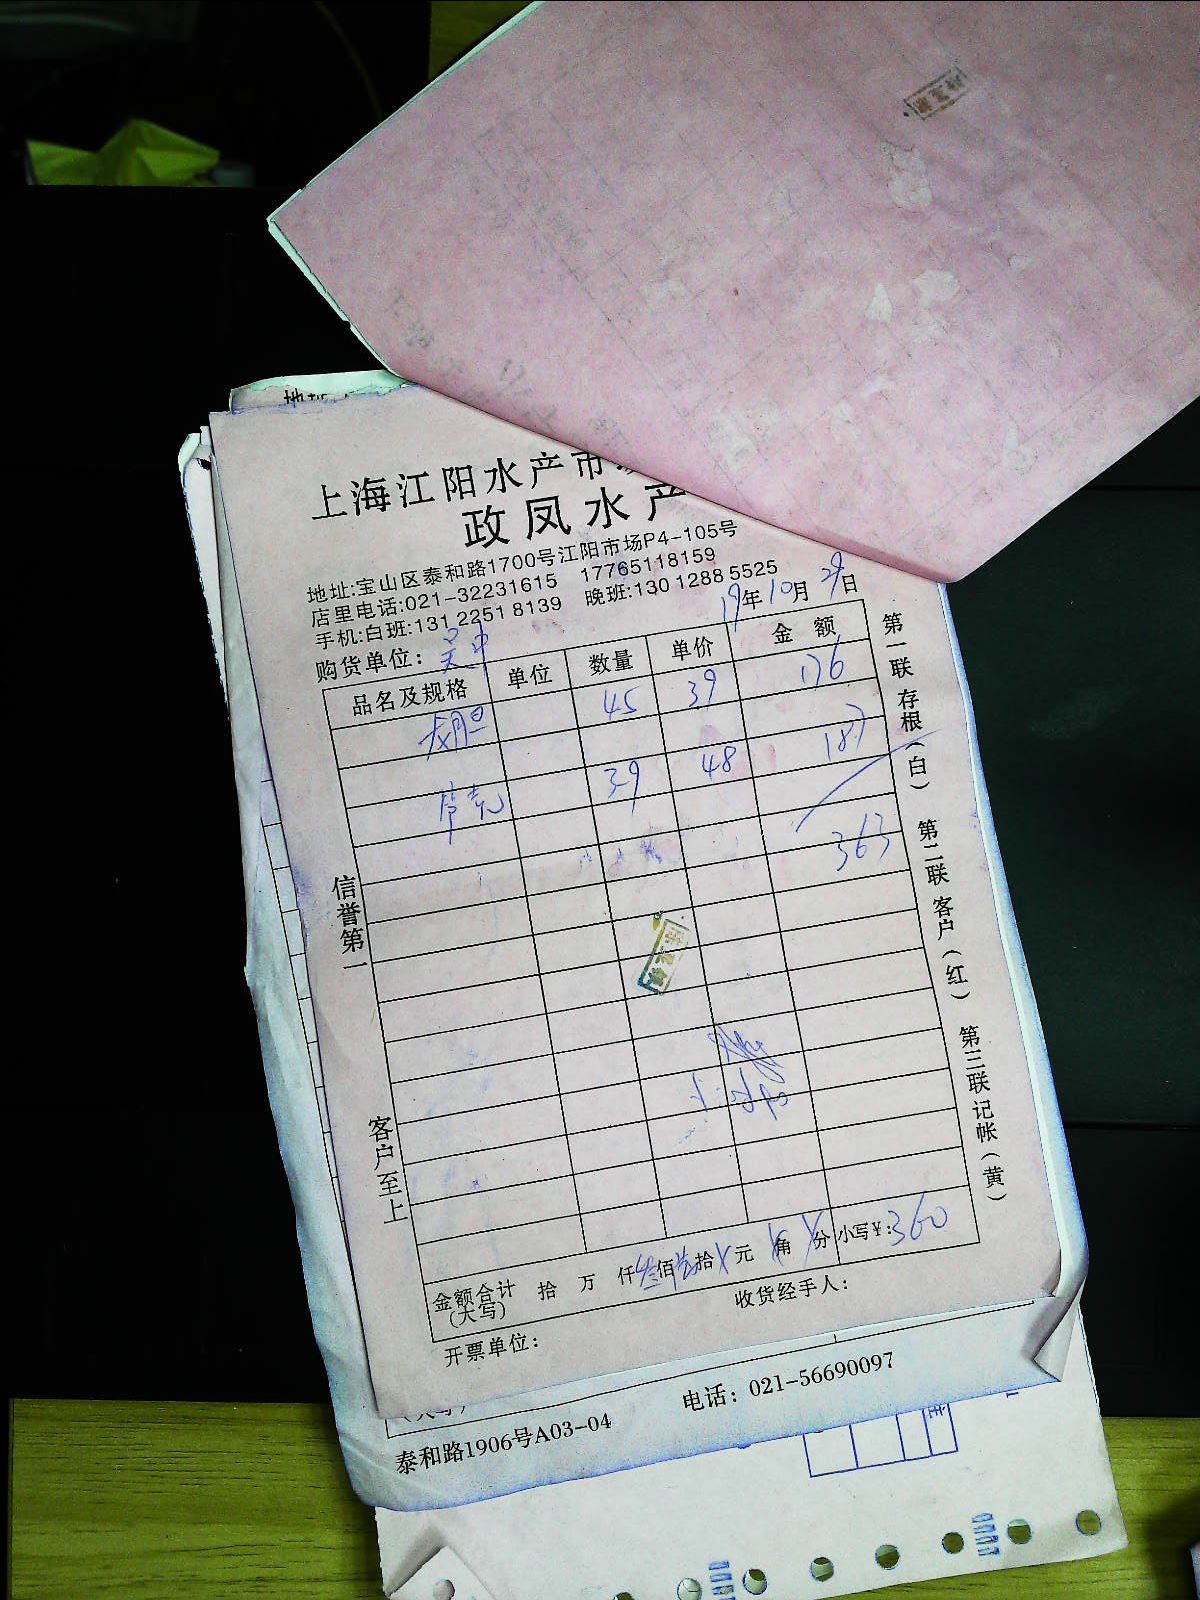 上海江阳水产市
政凤水产
地址:宝山区泰和路1700号江阳市场P4-105号
店里电话:021-32231615 17765118159
手机:白班:131 2251 8139 晚班:130 1288 5525
19年10月29日
购货单位:吴中
品名及规格 单位 数量 单价 金额
45 39 176
39 48 187
363
信誉第一
客户至上
第一联 存根(白) 第二联 客户(红) 第三联 记帐(黄)
金额合计 拾 万 仟叁佰陆拾 元 角 分 小写¥:360
(大写)
收货经手人:
开票单位:
电话: 021-56690097
泰和路1906号A03-04